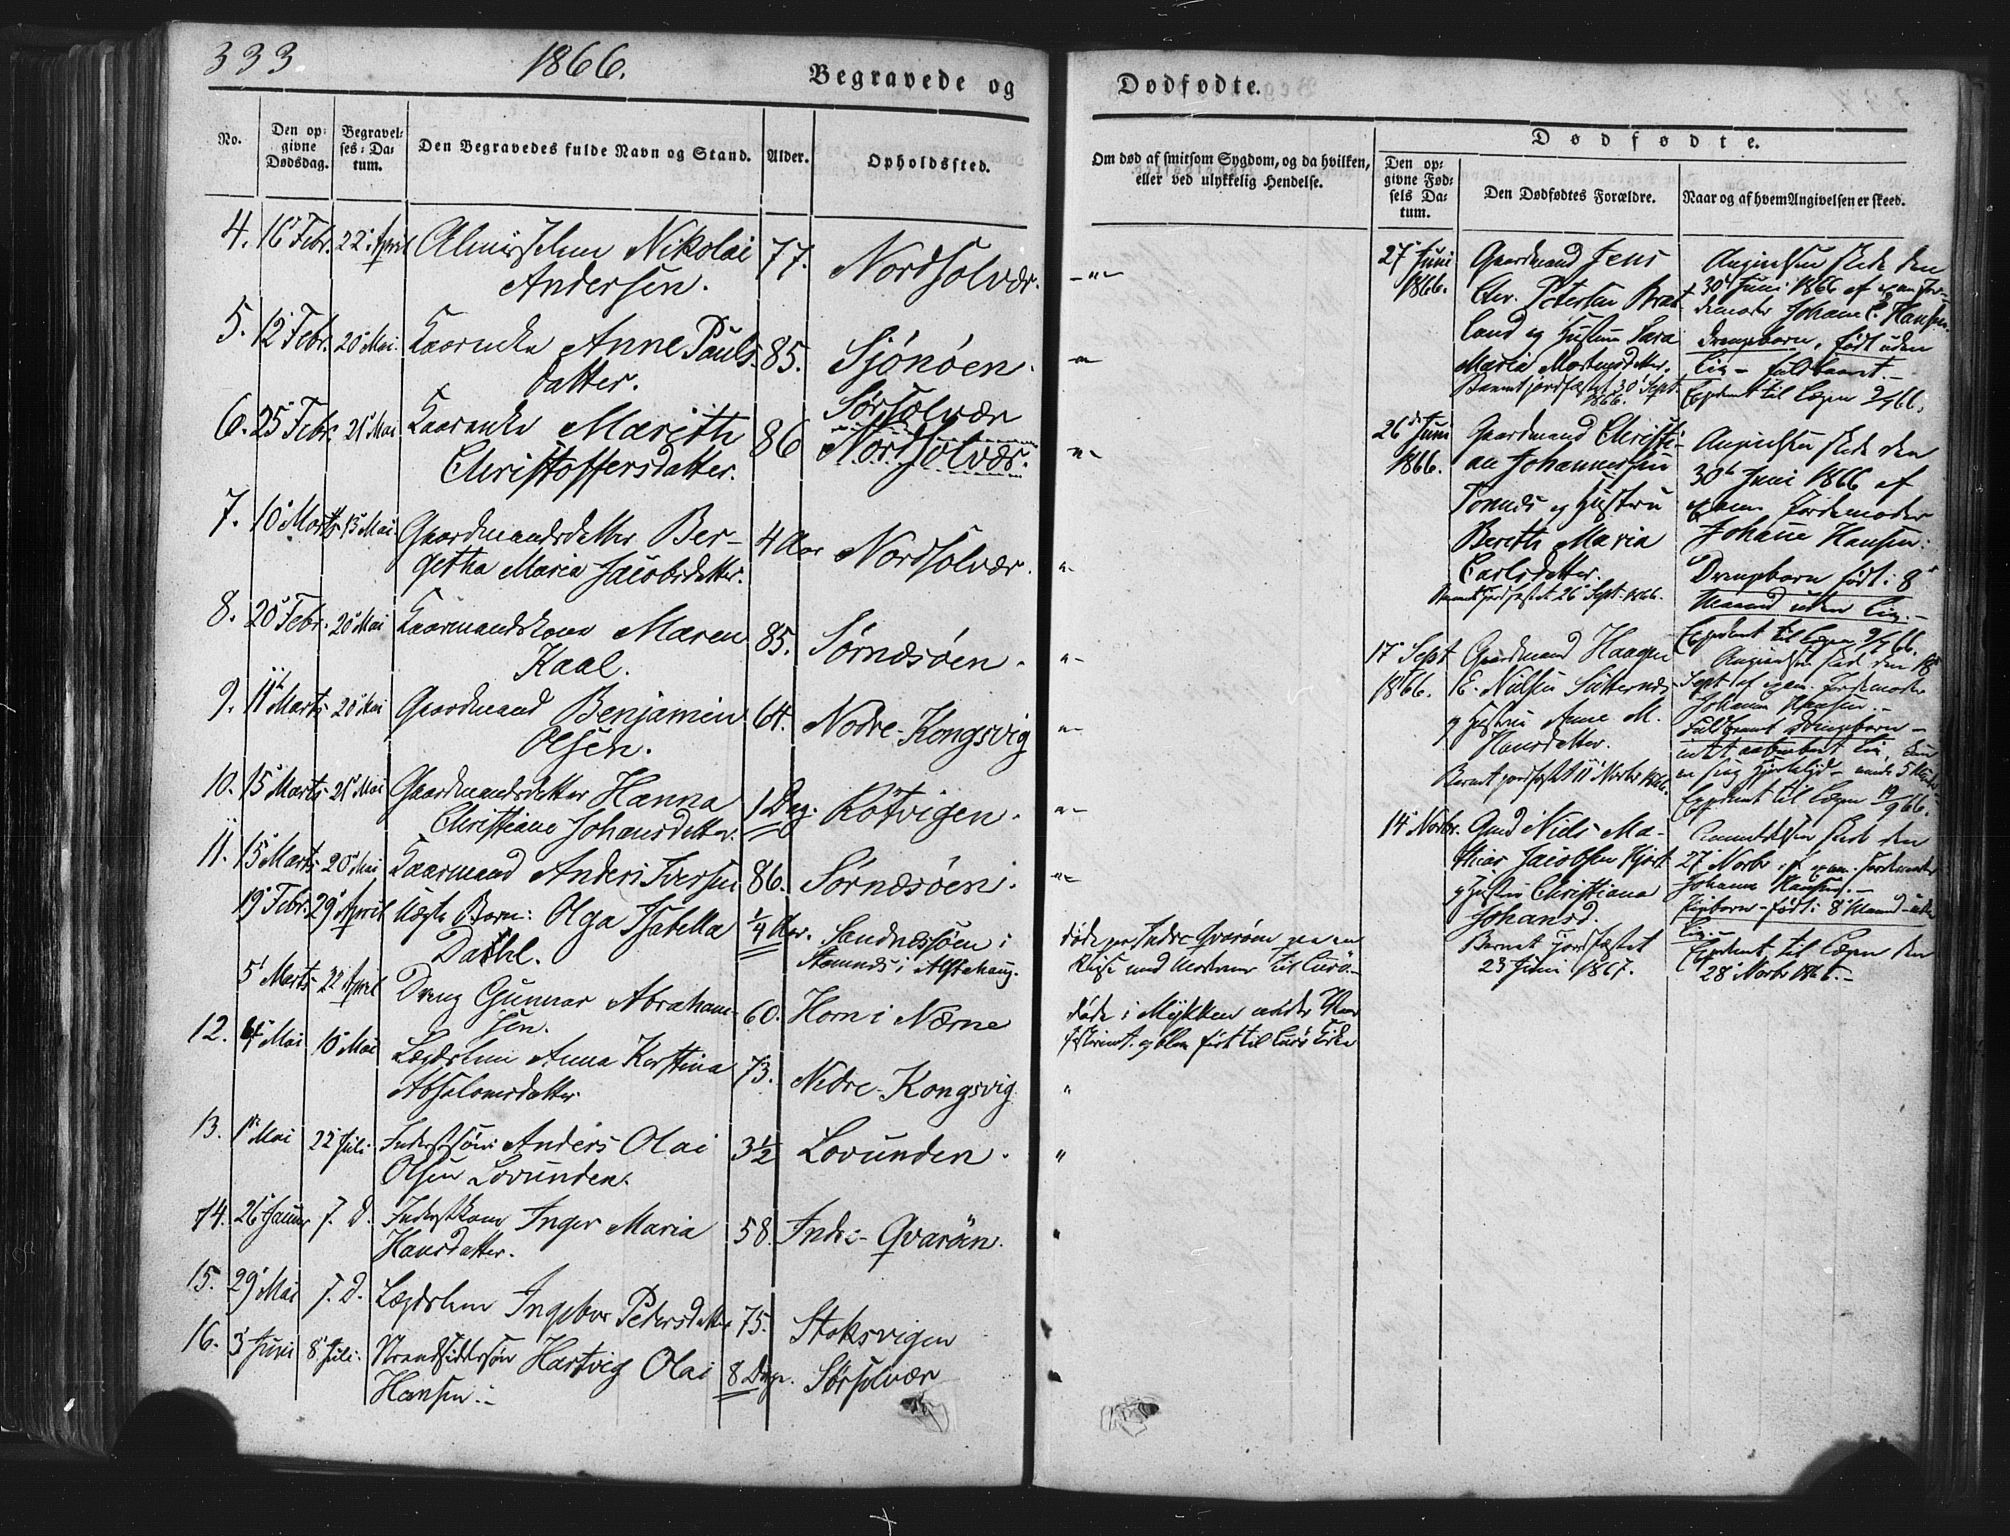 333.
1866.
Begravede og
No.
Den opgivne Dødsdag.
Begravelses-Datum.
Den Begravedes fulde Navn og Stand.
Alder.
Opholdssted.
4. 16 Febr. 22 April Nikolai 77. Nordsolvær.
Andersen.
5. 12 Febr. 20 Mai. Kaarenke Anne Pauls 85. Sjönöen.
datter.
Sørsolvær
6. 25 Febr. 21 Mai Kaarenke Marith 86 Nordsolvær.
Christoffersdatter.
7. 10 Marts 13 Mai. Gaardmandsdatter Ber- 4 Aar Nordsolvær.
getha Maria Jacobsdatter.
8. 20 Febr. 20 Mai Kaarmandskone Maren 85. Sørnæsøen.
Kaal.
9. 11 Marts 20 Mai Gaardmand Benjamin 64. Nedre-Kongsvig
Olsen.
10. 15 Marts 21 Mai Gaardmandsdatter Hanna 1 Dag. Rötvigen.
Christiane Johansdatter.
11. 15 Marts 20 Mai Kaarmand Anders Iversen 86. Sørnæsøen.
19 Febr. 29 April Uægte Barn: Olga Isabella 1/4 Aar. Sandnessöen i
Dahl. Stamnes i Alstahaug.
5 Marts 22 April Dreng Gunnar Abraham- 60. Horn i
sen.
12. 4 Mai 10 Mai Lægdslem Anna Kerstina 73. Nedre-Kongsvig
Absalonsdatter.
13. 1 Mai 22 Juli. Inderstsøn: Anders Olai 3½ Lovunden.
Olsen Lovunden.
14. 26 Januar f. d. Inderstkone Inger Maria 58. Indre-Qvaröen.
Hansdatter.
15. 29 Mai f. d. Lægdslem Ingebor Pedersdatter 75. Stoksvigen
16. 3 Juni 8 Juli. Strandsiddersøn Hartvig Olai 8 Dage. Sørsolvær
Hansen.
Dødfødte.
Om død af smitsom Sygdom, og da hvilken,
eller ved ulykkelig Hendelse.
døde paa Indre-Qvaröen paa en
Reise med Moderen til Lurö.
døde i Mykken under
og blev ført til Lurö Kirke
Dødfødte.
Den opgivne Fødsels Datum.
Den Dødfødtes Forældre.
Naar og af hvem Angivelsen er skeed.
27 Juni
1866.
Gaardmand Jens
Chr. Petersen Brat-
land og Hustru Sara
Maria Mortensdatter.
Barnet jordfæstet 30 Sept.
1866.
Angivelsen skede den
30 Juni 1866 af exam. Jor-
demoder Johane C. Hansen.
Drengebarn, født uden
Liv - fuldbaaret.
Expederet til Lægen 2/7 66.
26 Juni
1866.
Gaardmand Christi-
an Johannessen
Tonnes og Hustru
Bereth Maria
Carlsdatter.
Barnet jordfæstet 26 Sept. 1866.
Angivelsen skede den
30 Juni 1866 af
exam. Jordemoder
Johane Hansen.
Drengebarn født i 8
Maaned uden Liv.
Expederet til Lægen 2/7 66.
17 Sept
1866.
Gaardmand Haagen
E. Nielsen
og Hustru Anne M.
Hansdatter.
Barnet jordfæstet 11 Novbr 1866.
Angivelsen skede den 18
Sept af exam. Jordemoder
Johanna Hansen.
Fuldbaaret Drengebarn -
intet aabenbart Liv, kun
en svag Hjertelyd
Expederet til Lægen 19/9 66.
14 Novbr.
Gmd Niels Ma-
thias Jacobsen Hjart
og Hustru Christiana
Johansd.
Barnet jordfæstet
23 Juni 1867.
Anmeldelsen skede den
27 Novbr af exam. Jordemoder
Johanna Hansen.
Pigebarn - født i 8 Maaned uden
Liv.
Expederet til Lægen den
28 Novbr 1866.